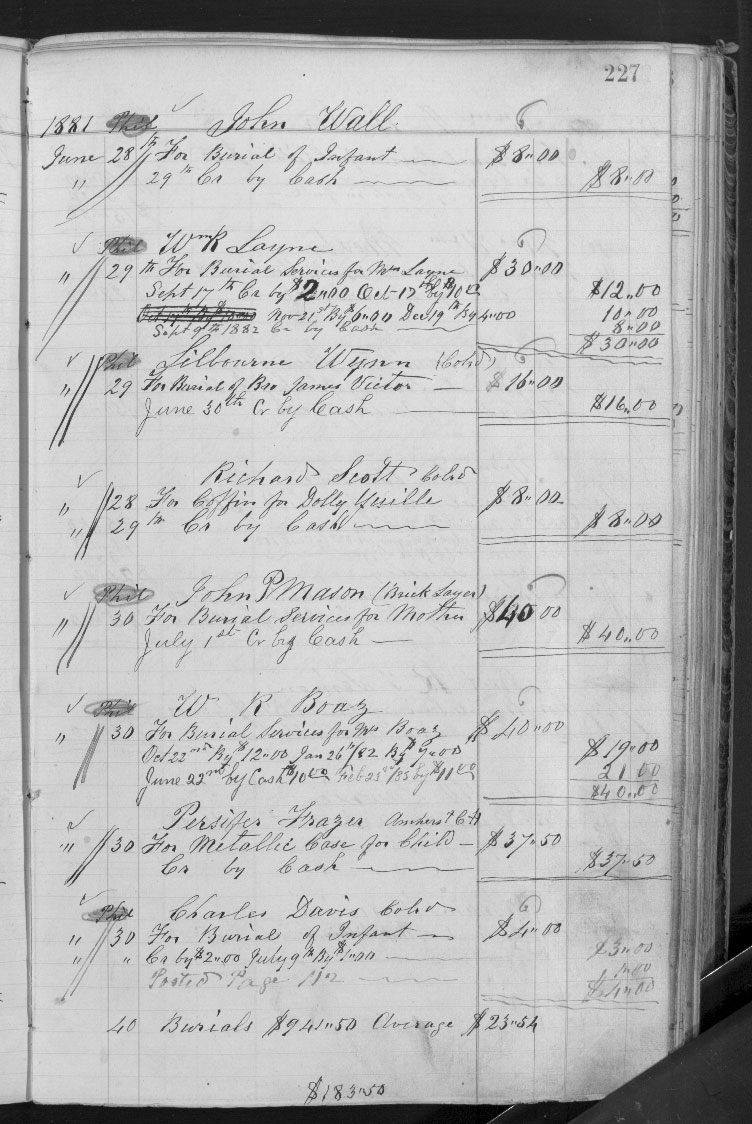 227
1881 Phil John Wall
June 28th For Burial of Infant $8"00
" 29th Cr by Cash $8"00
Phil Wm R Layne
" 29th For Burial Services for Mrs Layne $30"00
Sept 17th Cr by $2"00 Oct 17th by $10"00 $12"00
Nov 21st By $6"00 Dec 19th By 4"00 10"00
Sept 9th 1882 Cr by Cash 8"00
$30"00
Phil Lilbourne Wynn (Colrd)
" 29 For Burial of Bro James Victor $16"00
June 30th Cr by Cash $16"00
Richard Scott Colrd
" 28 For Coffin for Dolly Quille $8"00
" 29th Cr by Cash $8"00
Phil John P Mason (Brick Layer)
" 30 For Burial Services for Mother $40"00
July 1st Cr by Cash $40"00
Phil W R Boaz
" 30 For Burial Services for Mrs Boaz $40"00
Oct 22nd By $12"00 Jan 26th/82 By $7"00 $19"00
June 22nd by Cash $10"00 Feb 23rd/83 by $11"00 21"00
$40"00
Persifer Frazer Amherst C H
" 30 For Metallic Case for Child $37"50
Cr by Cash $37"50
Phil Charles Davis Colrd
" 30 For Burial of Infant $4"00
" " Cr by $2"00 July 9th By $1"00 $3"00
Posted Page 1"00
$4"00
40 Burials $941"50 Average $23"54
$183"50